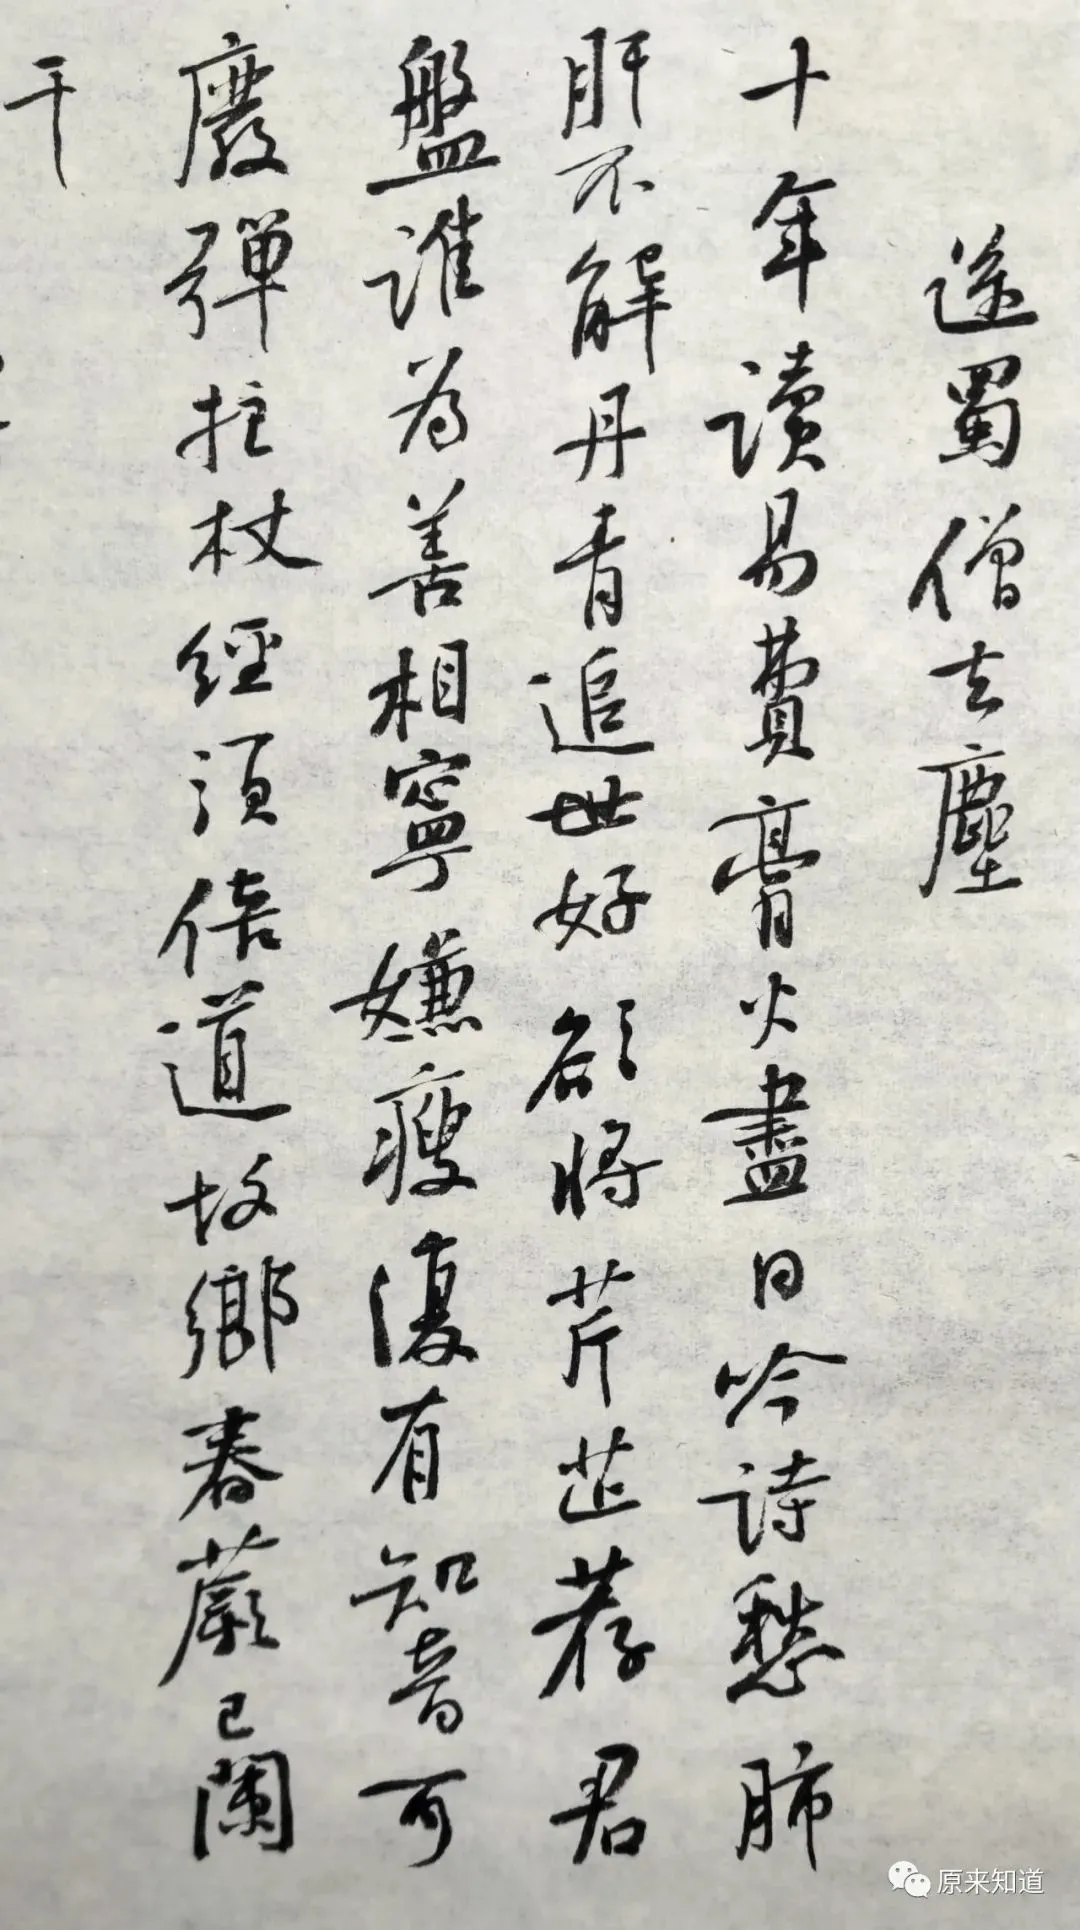 送蜀僧去塵
十年讀易費膏火盡日吟詩愁肺
肝不解丹青追世好欲將芹芷荐君
盤誰為善相寧嫌瘦復有知音可
廢彈拄杖經須倍道故鄉春蕨已闌
干
原来知道